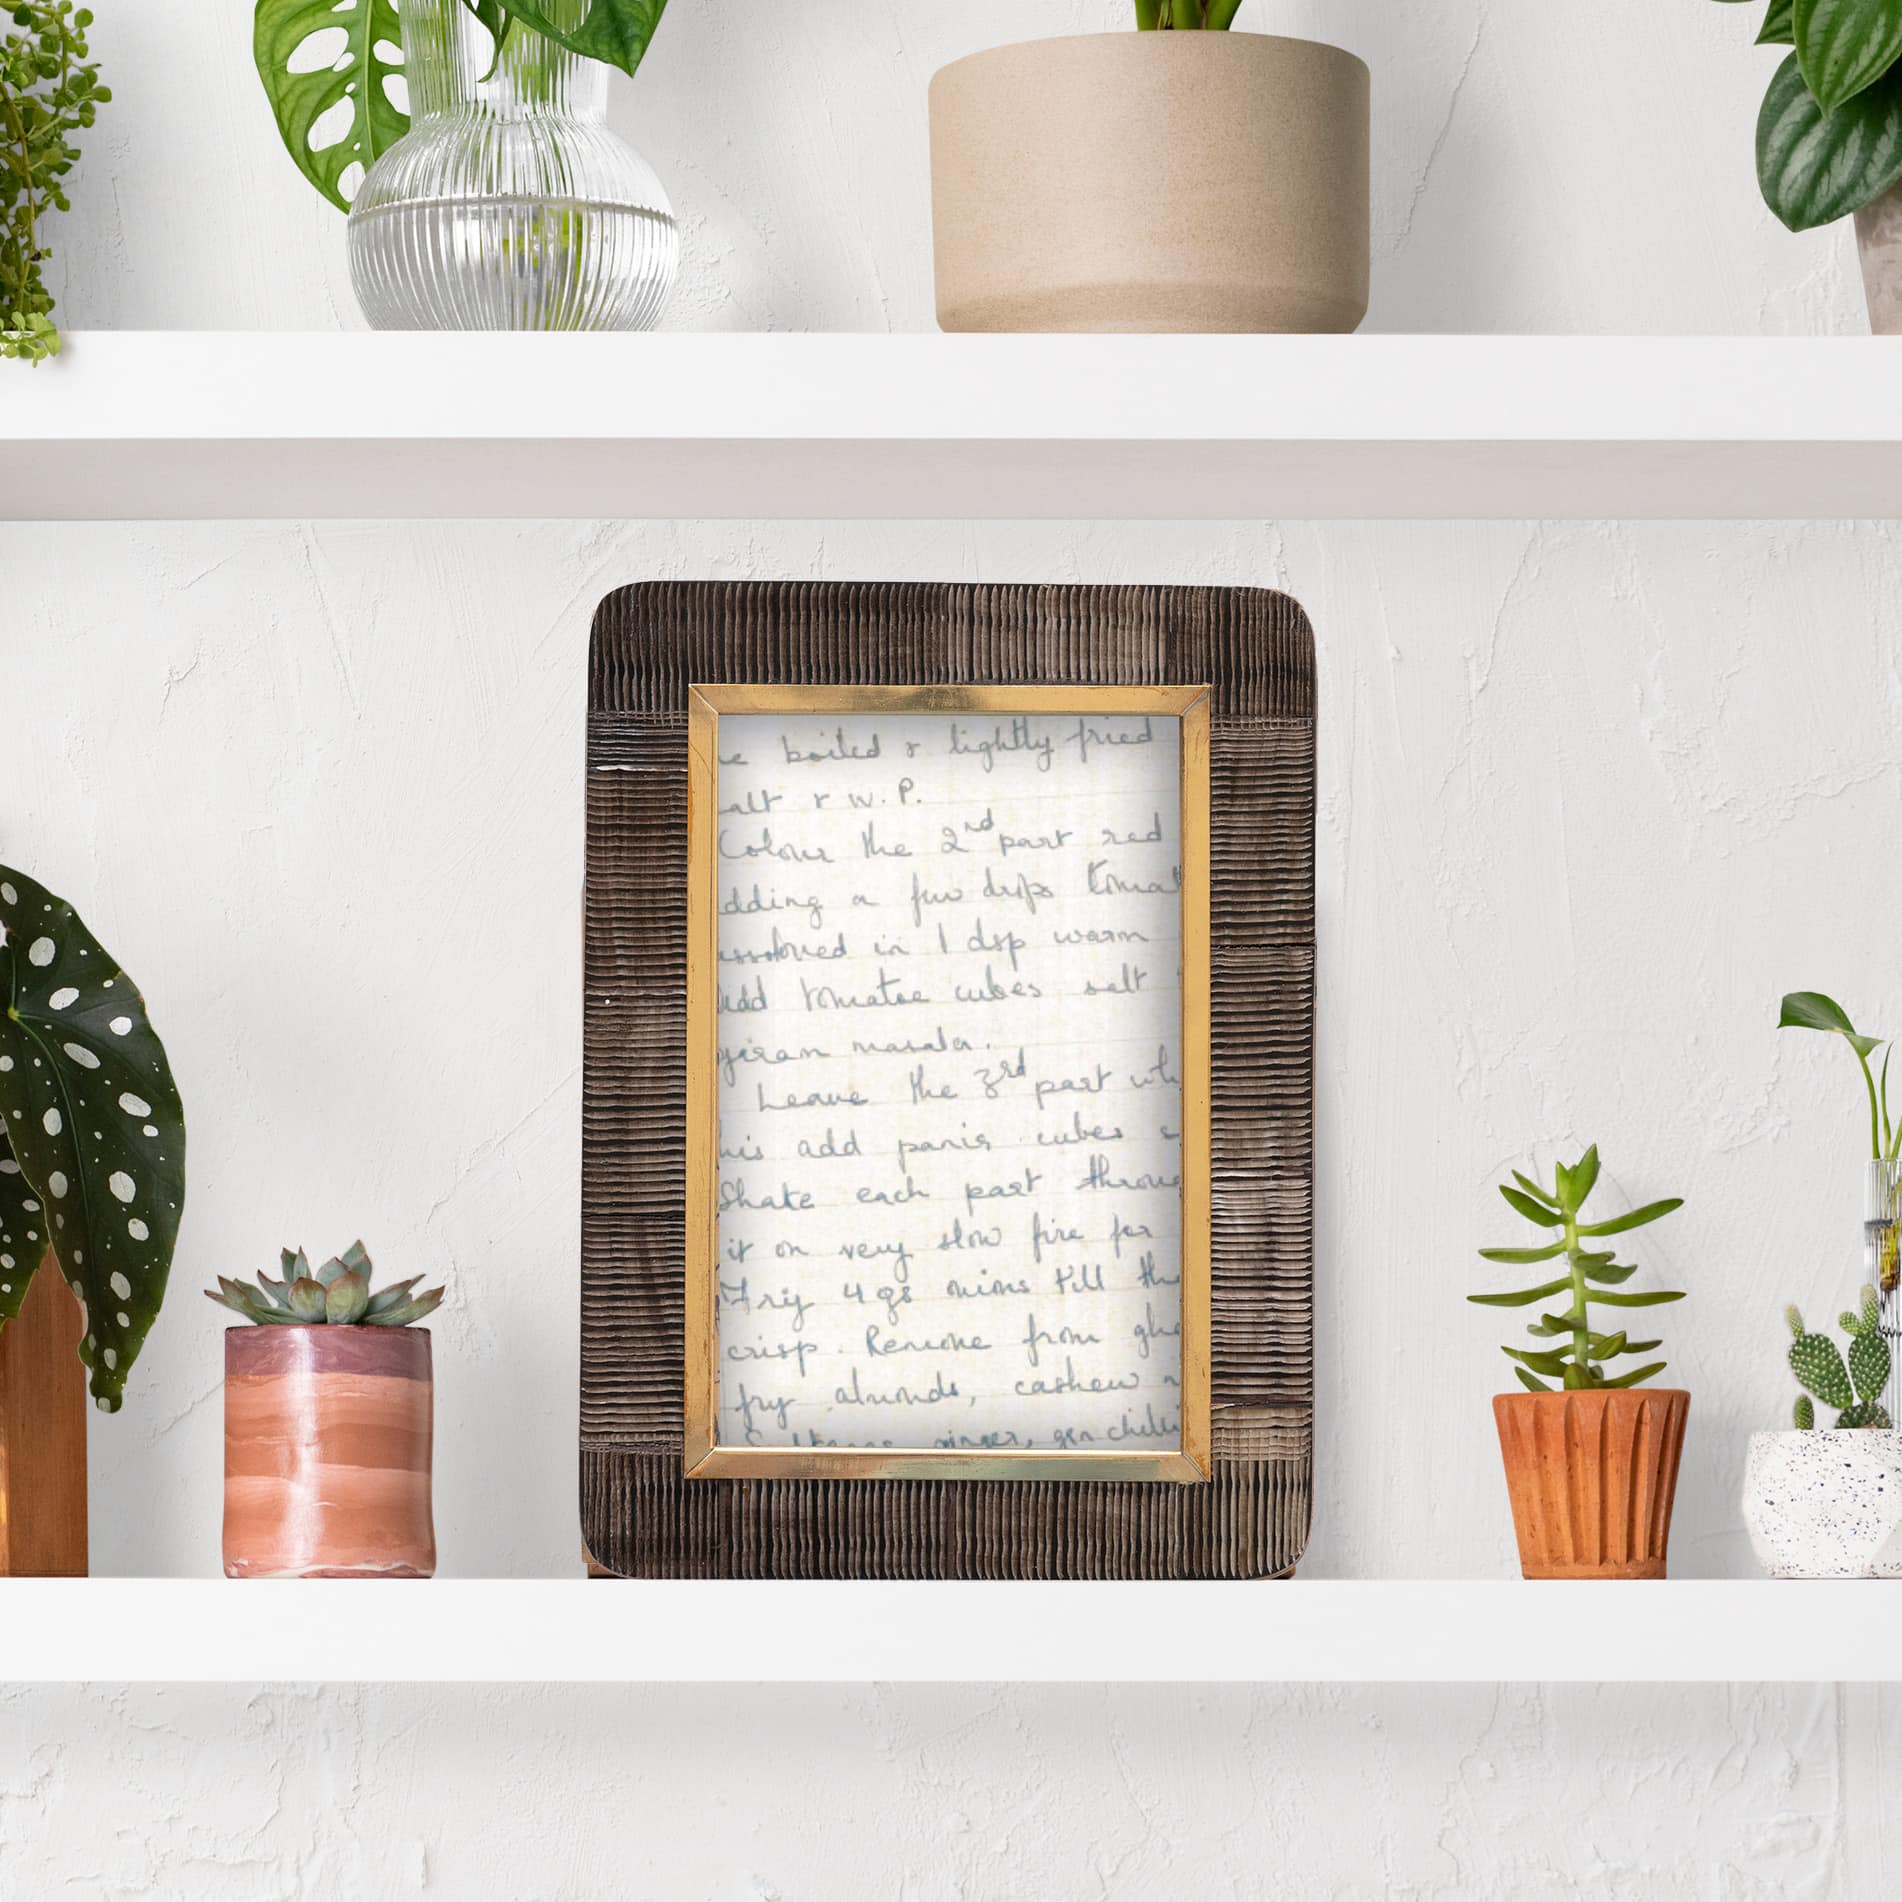 boiled & lightly fried
alt & W.P.
Colour the 2nd part red
dding a few drops tomat
in 1 dsp warm
Add tomatoe cubes salt
jiran masala.
Leave the 3rd part wh
his add panir cubes s
Shake each part throug
it on very slow fire for
Fry 4 gs nions till the
crisp. Remove from ghe
fry almonds, cashew n
Sultanas ginger, gen chilli